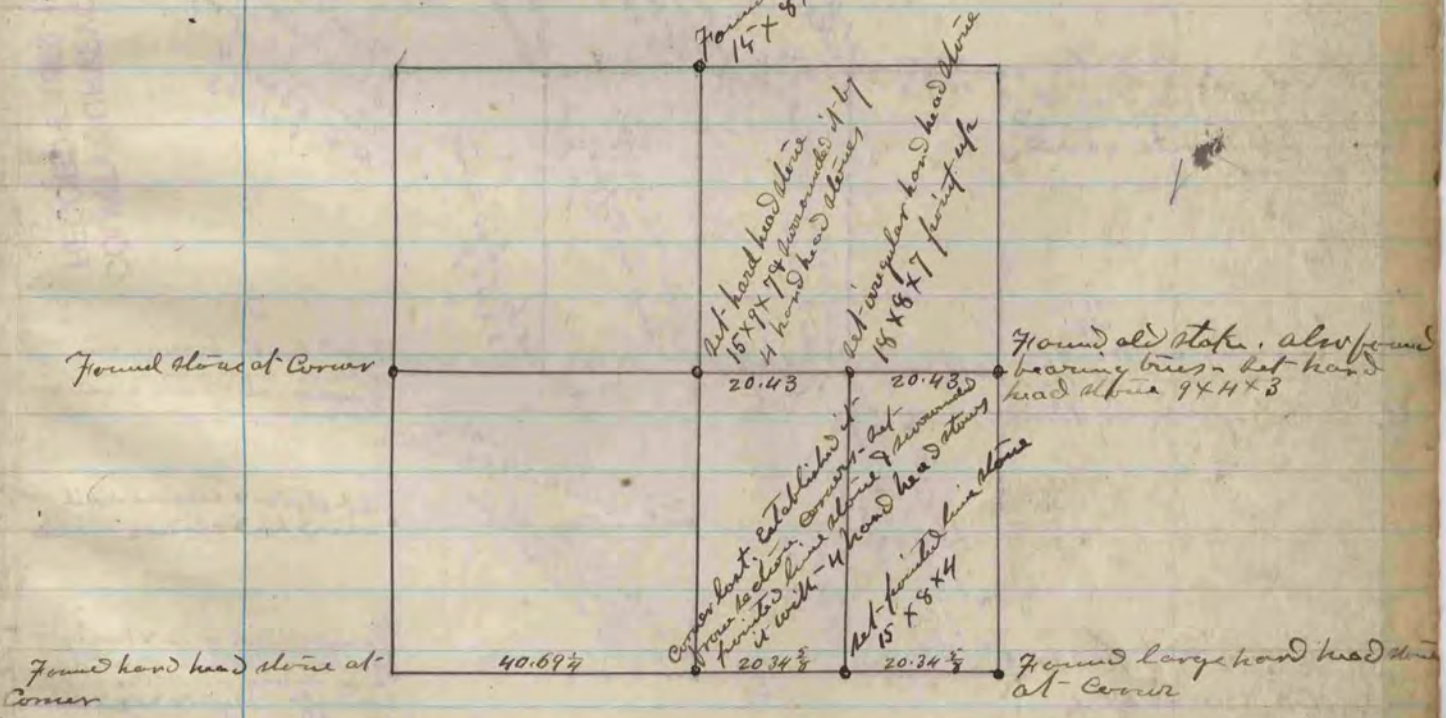 Found
15 x 8
Set hard head stone
15 x 9 x 7 & surrounded it by
4 hard head stones
Set irregular hard head stone
18 x 8 x 7 point up
Found stone at Corner
20.43
20.43
Found old stake. also found
bearing trees - Set hard
head stone 9 x 4 x 3
Corner lost. Established it
from section corners - set
pointed lime stone & surrounded
it with 4 hard head stones
Set pointed lime stone
15 x 8 x 4
Found hard head stone at
Corner
40.69 1/4
20 34 5/8
20.34 5/8
Found large hard head stone
at Corner